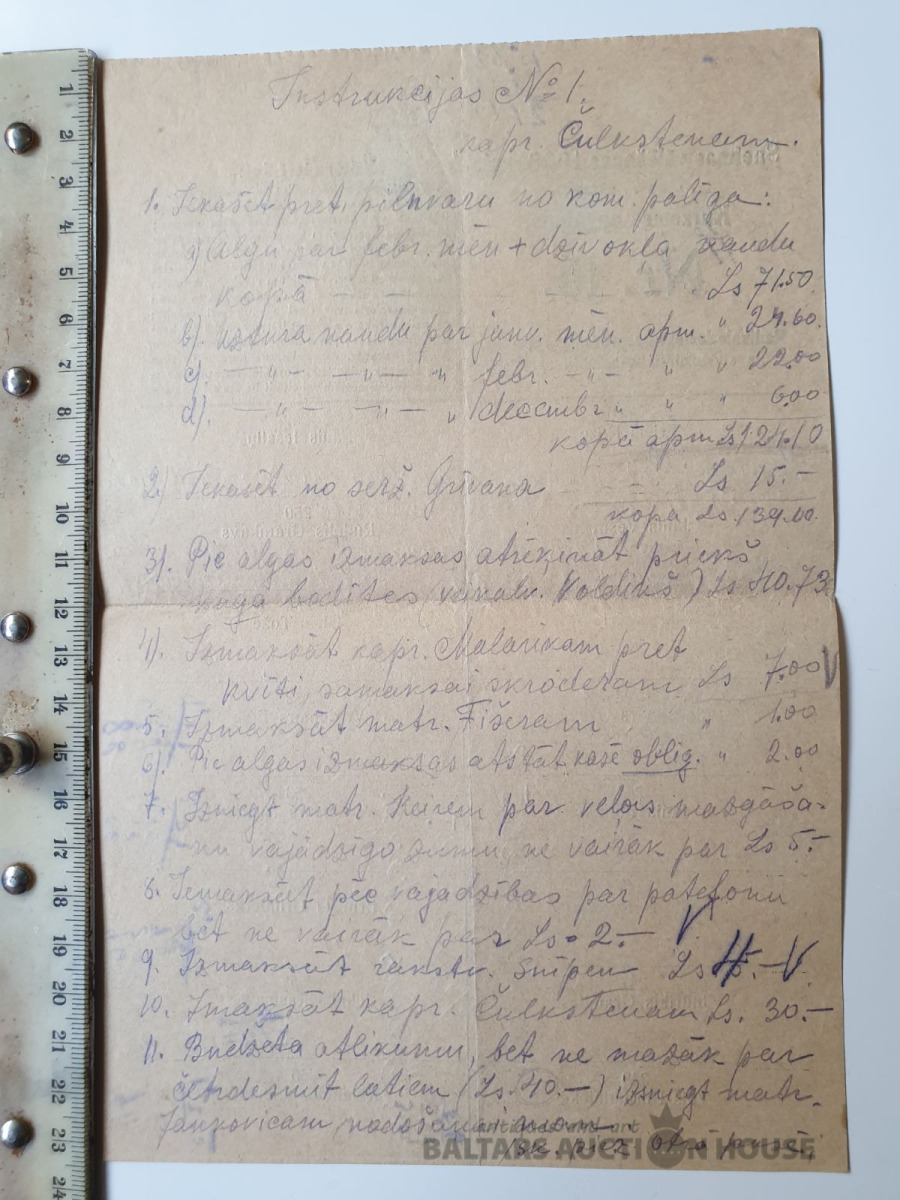 Instrukcijas № 1.
kapr. Čulkstenam.
1. Iekasēt pret pilnvaru no kom. palīga:
a) Algu par febr. mēn + dzīvokļa naudu
kopā — — Ls 71.50
b). uztura naudu par janv. mēn. apm. " 24.60.
c). —"— —"— " febr. —"— " " 22.00
d). —"— —"— " decembr " " " 6.00
kopā apm Ls 124.10
2). Iekasēt no serž. Grīvana Ls 15.—
kopa Ls. 139.00.
3). Pie algas izmaksas atrēķināt priekš
kuģa bodītes (Voldiņš) Ls 40.73
4). Izmaksāt kapr. Malarikam pret
kvīti, samaksai skroderam Ls 7.00 V
5. Izmaksāt matr. Fišeram " 1.00
6). Pie algas izmaksas atstāt kasē oblig. " 2.00
7. Izniegt matr. par veļas mazgāša-
nu vajadzīgo sumu ne vairāk par Ls 5.—
8. Izmaksāt pēc vajadzības par patefonu
bet ne vairāk par Ls. 2.— V
9. Izmaksāt Snīpem Ls —V
10. Imaksāt kapr. Čulkstenam Ls. 30.—
11. Budžeta atlikumu, bet ne mazāk par
četrdesmit latiem (Ls. 40.—) izniegt matr.
Jankovicam nodošanai
sk. otrā pusē
BALTARS AUCTION HOUSE
1 2 3 4 5 6 7 8 9 10 11 12 13 14 15 16 17 18 19 20 21 22 23 24